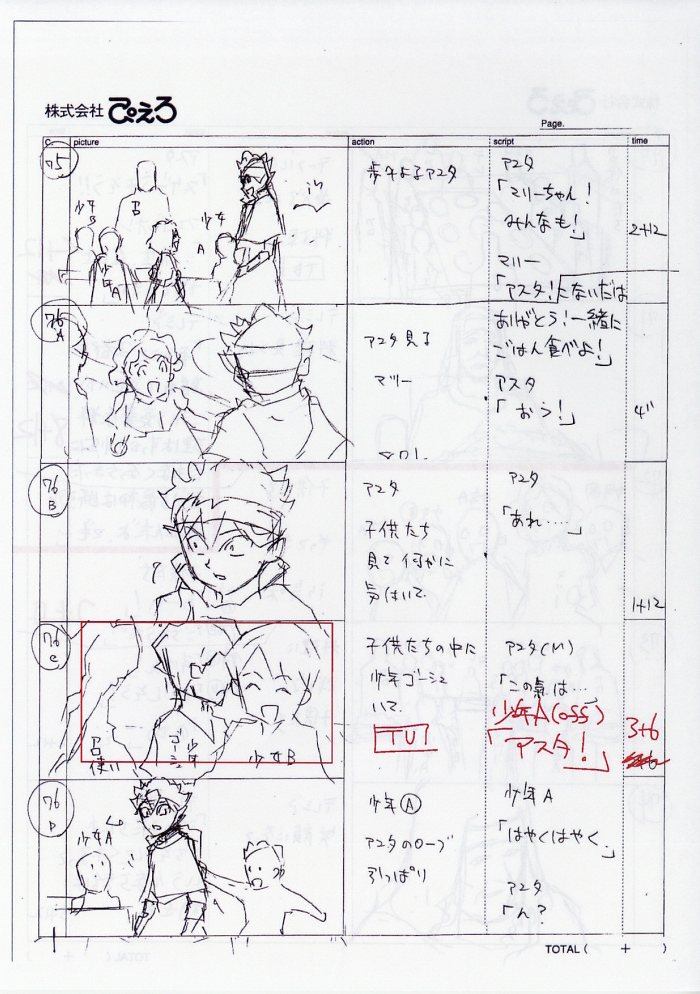 株式会社 ぴえろ
Page.
C. picture action script time
75
少年B
召
少年A
少女
A
歩みよるアスタ
アスタ
「マリーちゃん!
みんなも!」
マリー
「アスタ!こないだは
ありがとう!一緒に
ごはん食べよ!」
2+12
76
A
アスタ見る
マリー
アスタ
「おう!」
4"
76
B
アスタ
子供たち
見て何かに
気付いて
アスタ
「あれ…‥」
1+12
76
C
召
使い
少年
ゴーシュ
少女B
子供たちの中に
少年ゴーシュ
いて
TU
アスタ(M)
「この氣は…
少年A(OSS)
「アスタ!」
3+6
76
D
少女A
少年A
アスタのローブ
引っぱり
少年A
「はやくはやく」
アスタ
「ん?
TOTAL ( + )